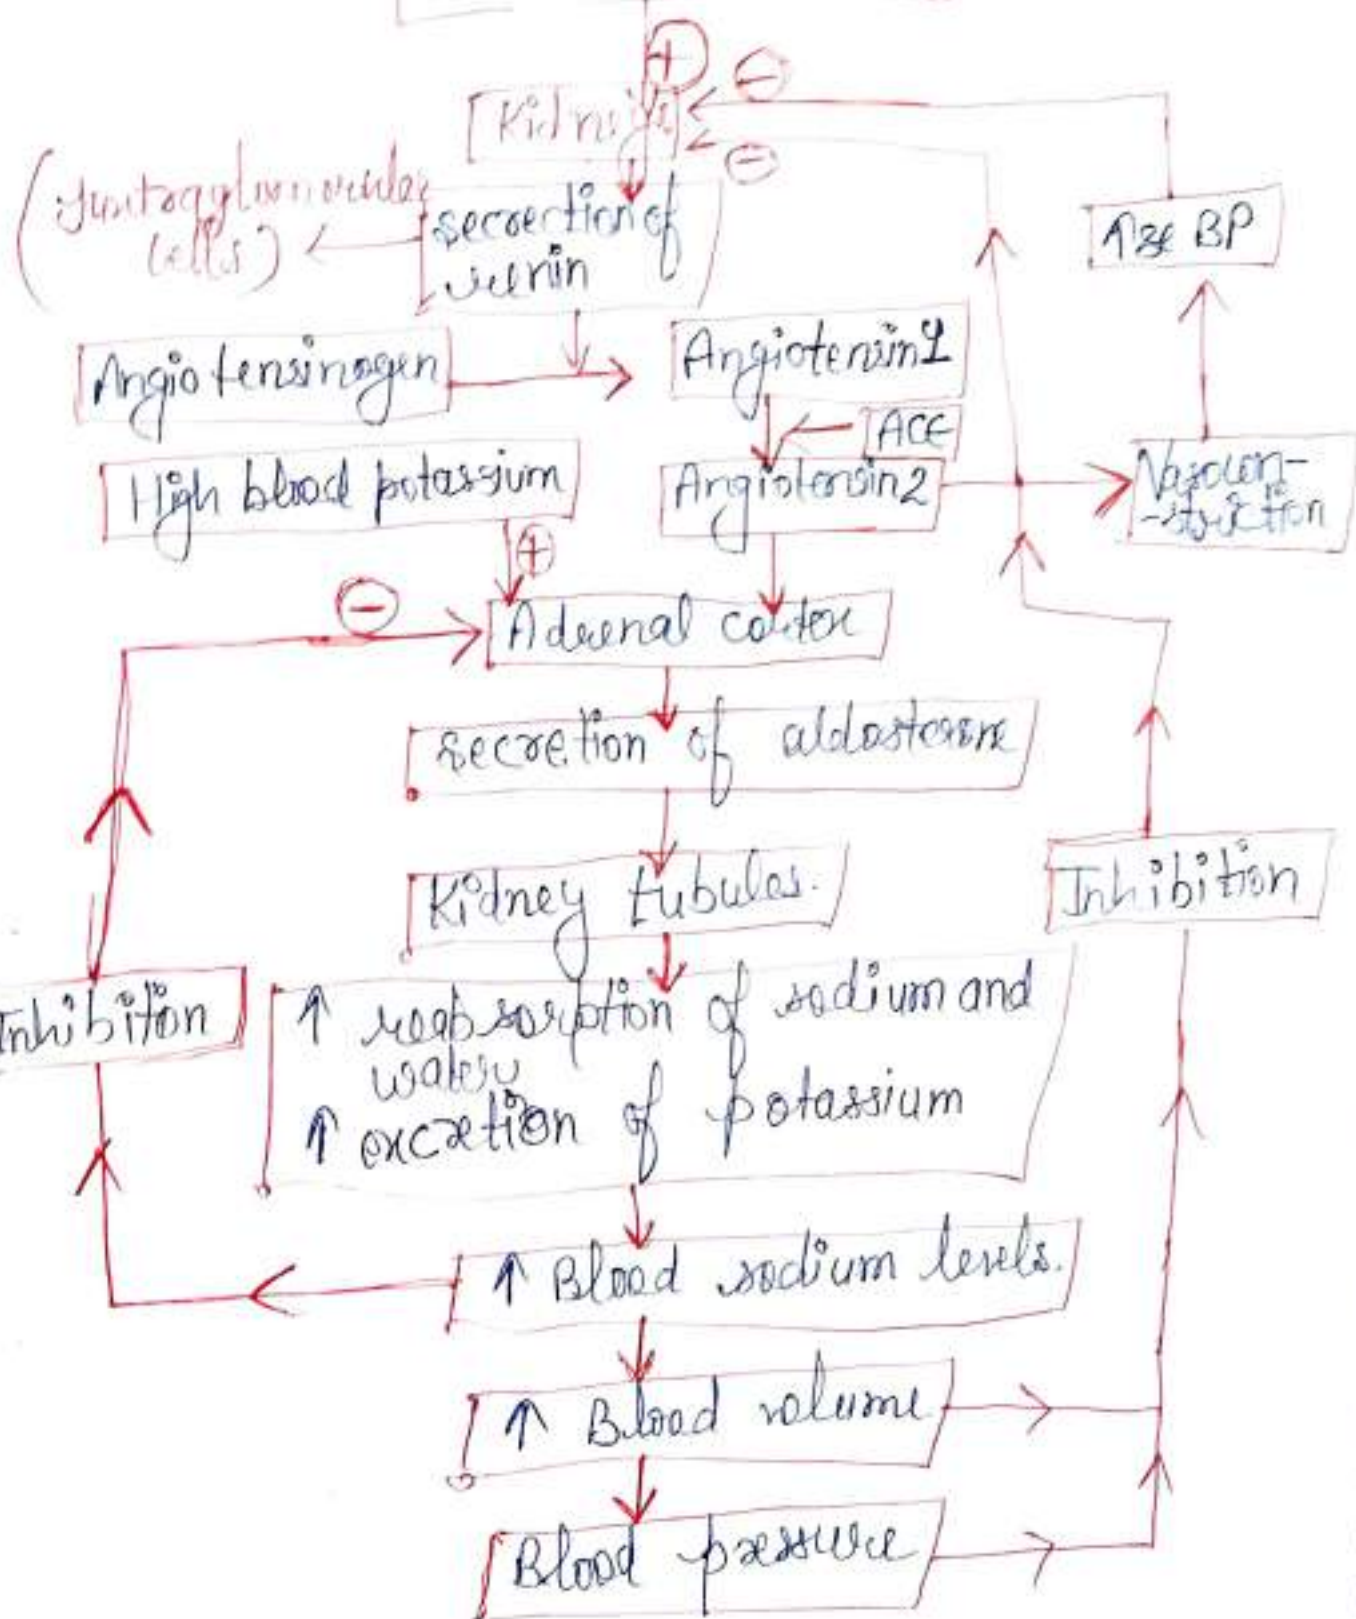 +
−
[Kidneys]
−
(Juxtaglomerular
cells)
secrection of
renin
↑se BP
Angiotensinogen
Angiotensin1
ACE
High blood potassium
Angiotensin2
Vasocon-
-striction
+
−
Adrenal cortex
secretion of aldosterone
Kidney tubules.
Inhibition
Inhibiton
↑ reabsorption of sodium and
water
↑ excretion of potassium
↑ Blood sodium levels.
↑ Blood volume
Blood pressure